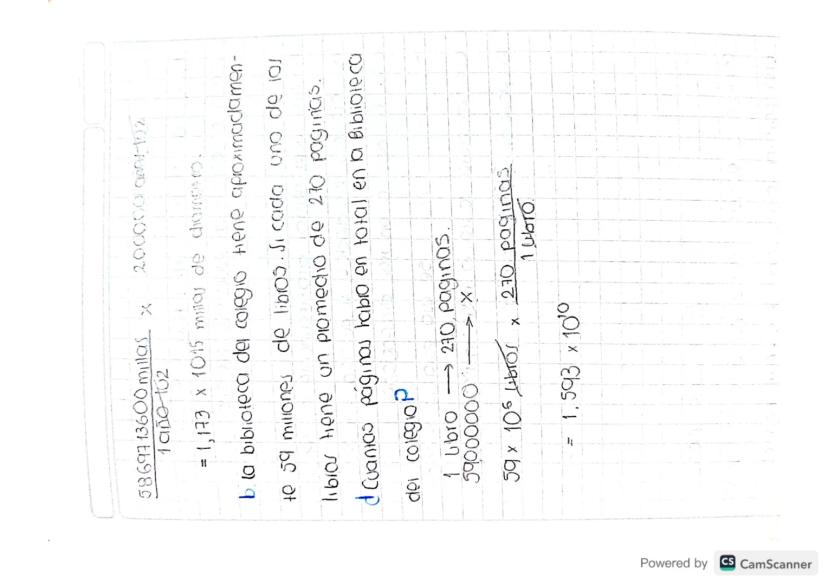 58697 13600 millas x 200000 años-luz
1 año-luz
= 1,173 x 10^15 millas de diametro.
b. la biblioteca del colegio tiene aproximadamen-
te 59 millones de libros. si cada uno de los
libros tiene un promedio de 270 paginas.
¿Cuantas páginas habra en total en la Biblioteca
del colegio?
1 libro → 270 paginas.
59000000 → x
59 x 10^6 libros x 270 paginas
1 libro
= 1.593 x 10^10
Powered by CS CamScanner